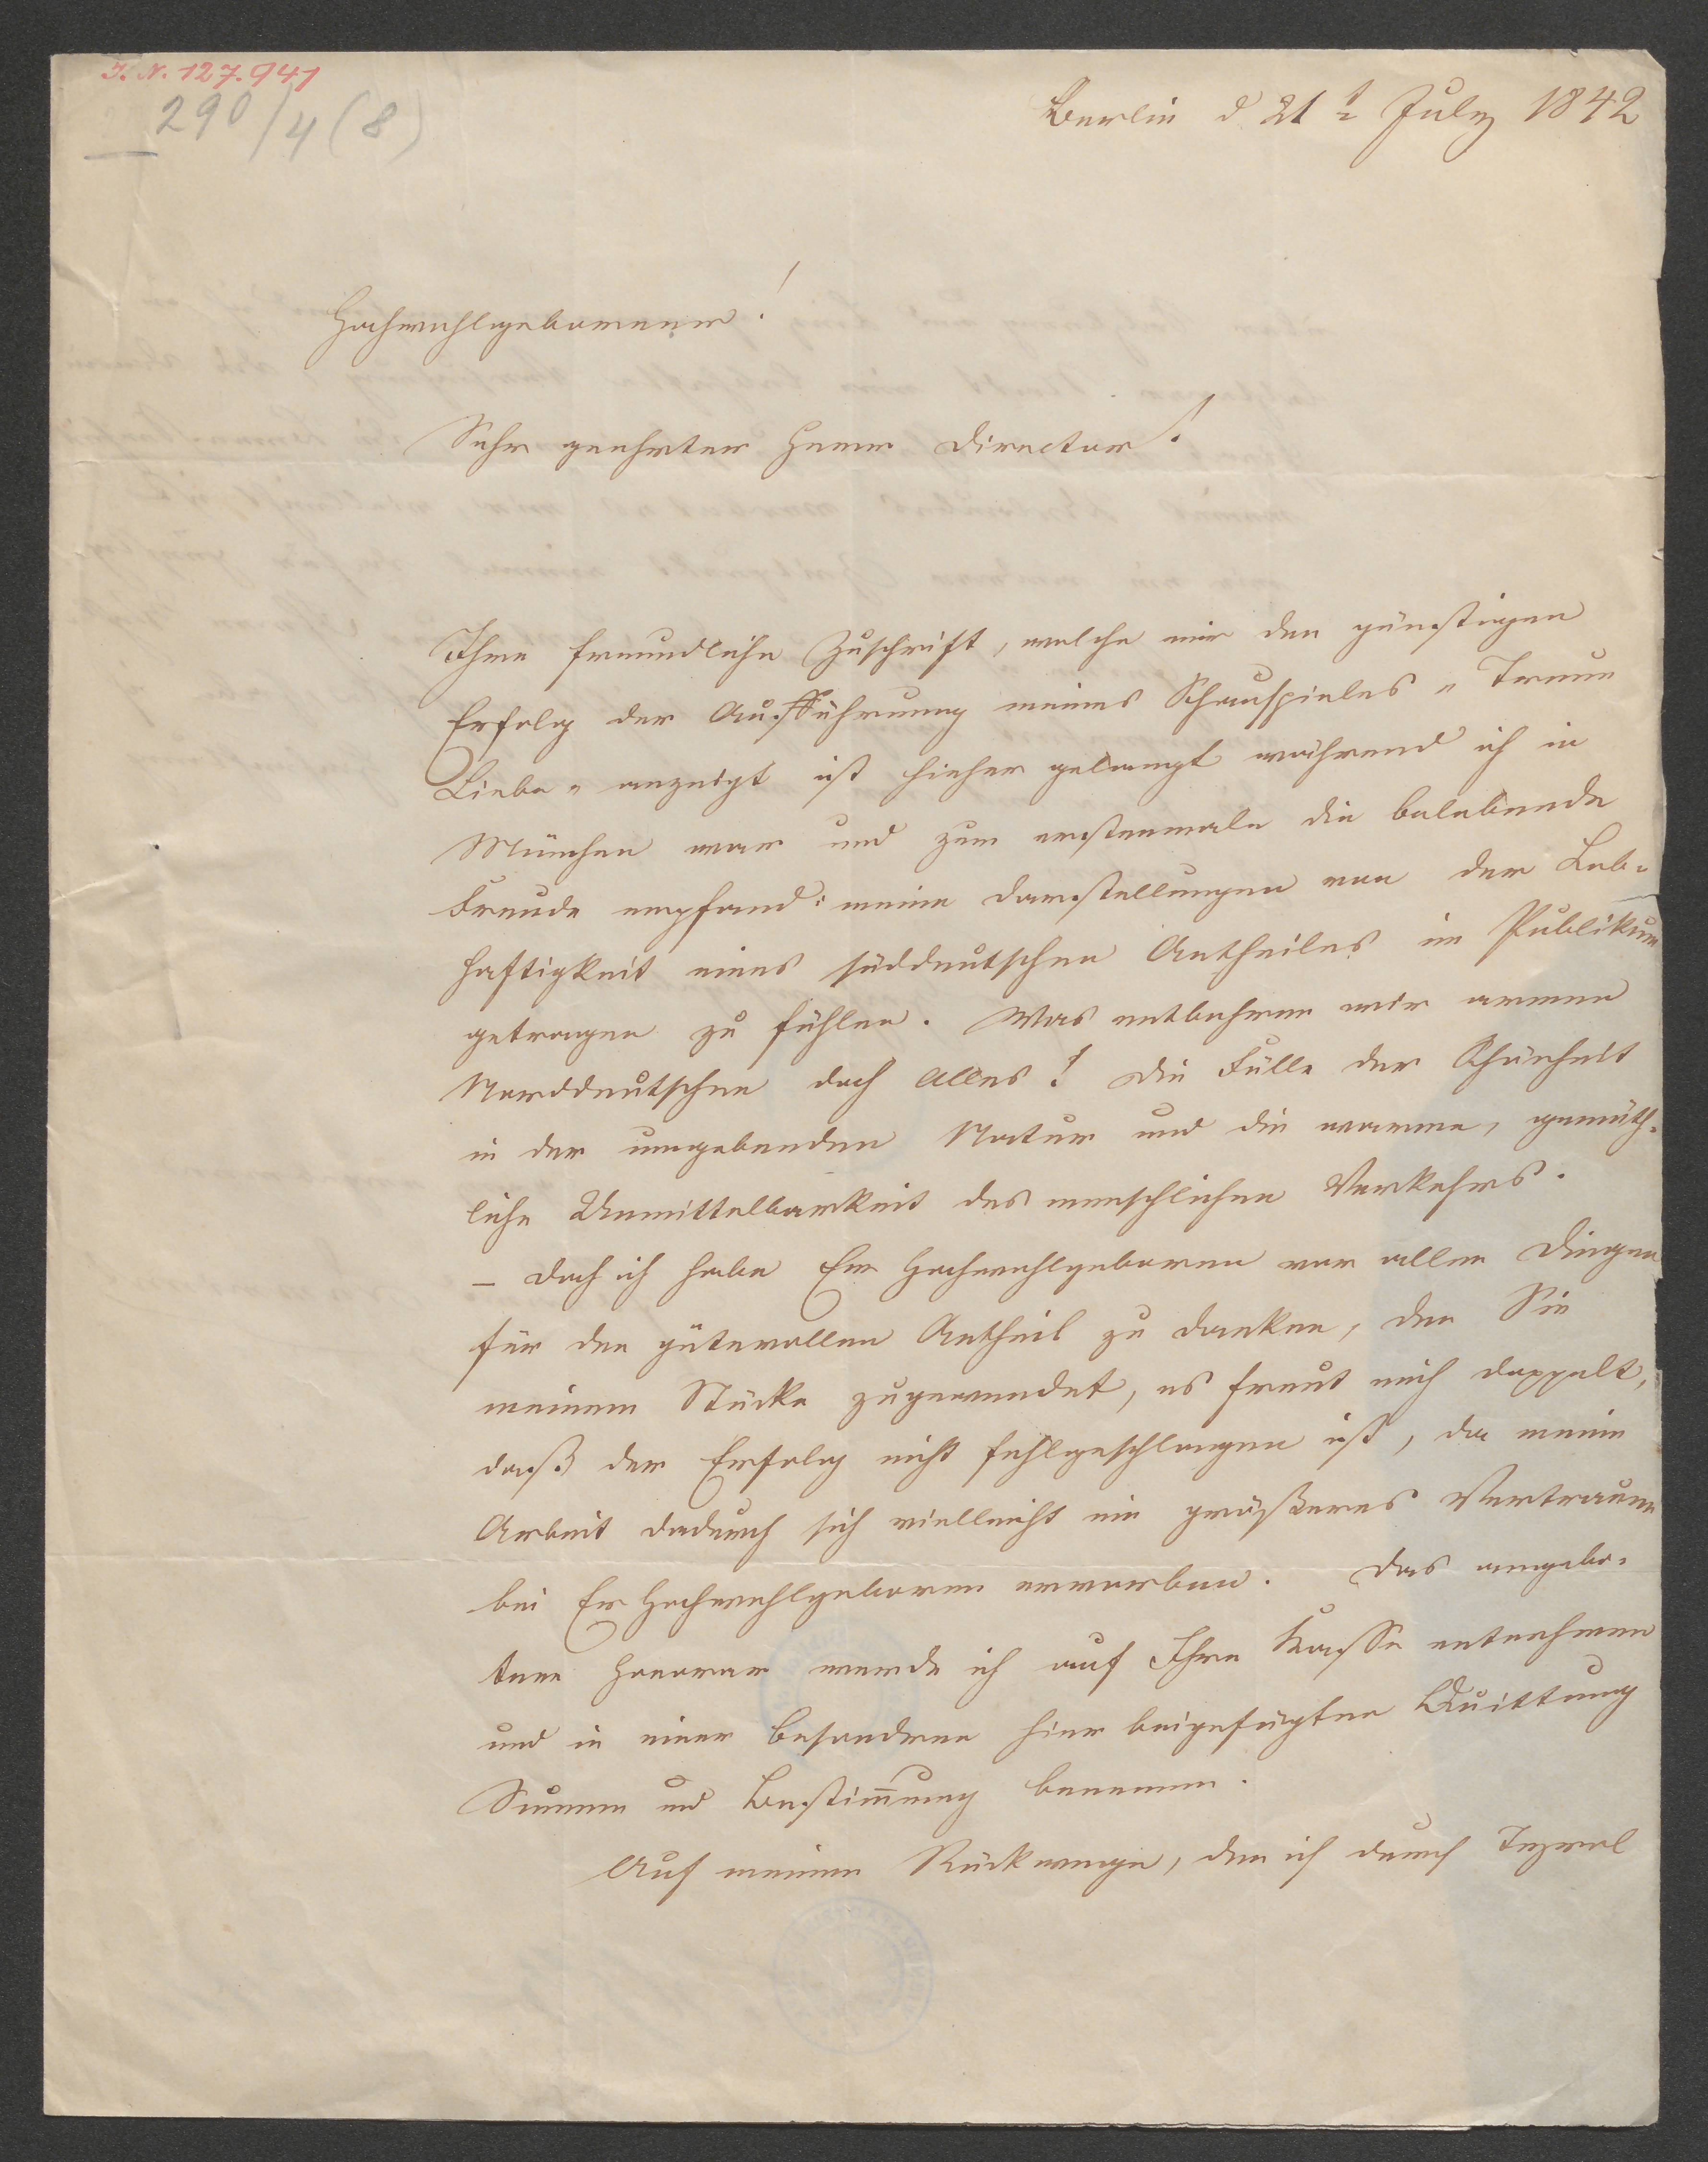 I. N. 127.941
290/4 (8)
Berlin d 21t July 1842
Hochwohlgeborener!
Sehr geehrter Herr Director!
Ihre freundliche Zuschrift, welche mir den günstigen
Erfolg der Aufführung meines Schauspieles „Treue
Liebe„ anzeigt ist hieher gelangt während ich in
München war und zum erstenmale die belebende
Freude empfand: meine Darstellungen von der Leb-
haftigkeit eines süddeutschen Antheiles im Publikum
getragen zu fühlen. Was entbehren wir armen
Norddeutschen doch Alles! Die Fülle der Schönheit
in der umgebenden Natur und die warme, gemüth-
liche Unmittelbarkeit des menschlichen Verkehrs.
– Doch ich habe Ew Hochwohlgeboren vor allen Dingen
für den gütevollen Antheil zu danken, den Sie
meinem Stücke zugewendet, es freut mich doppelt,
daß der Erfolg nicht fehlgeschlagen ist, da meine
Arbeit dadurch sich vielleicht ein größeres Vertrauen
bei Ew Hochwohlgeboren erworben. Das angebo-
tene Honorar werde ich auf Ihre Kasse entnehmen
und in einer besonderen hier beigefügten Quittung
Summe und Bestim̅ung benennen.
Auf meinem Rückwege, den ich durch Tyrol